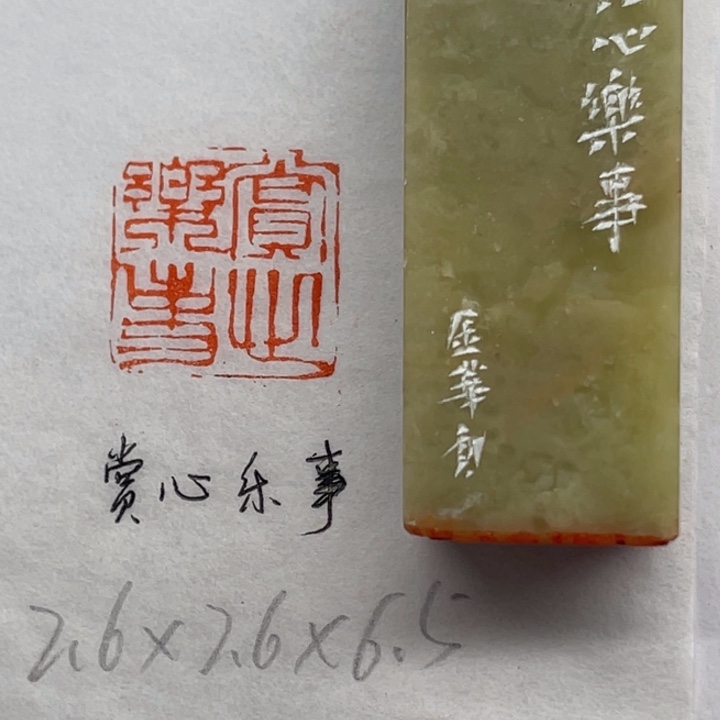 賞心
樂事
赏心乐事
2.6×2.6×6.5
心樂事